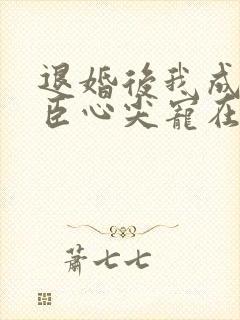 退婚後我成
臣心尖寵在
蕭七七